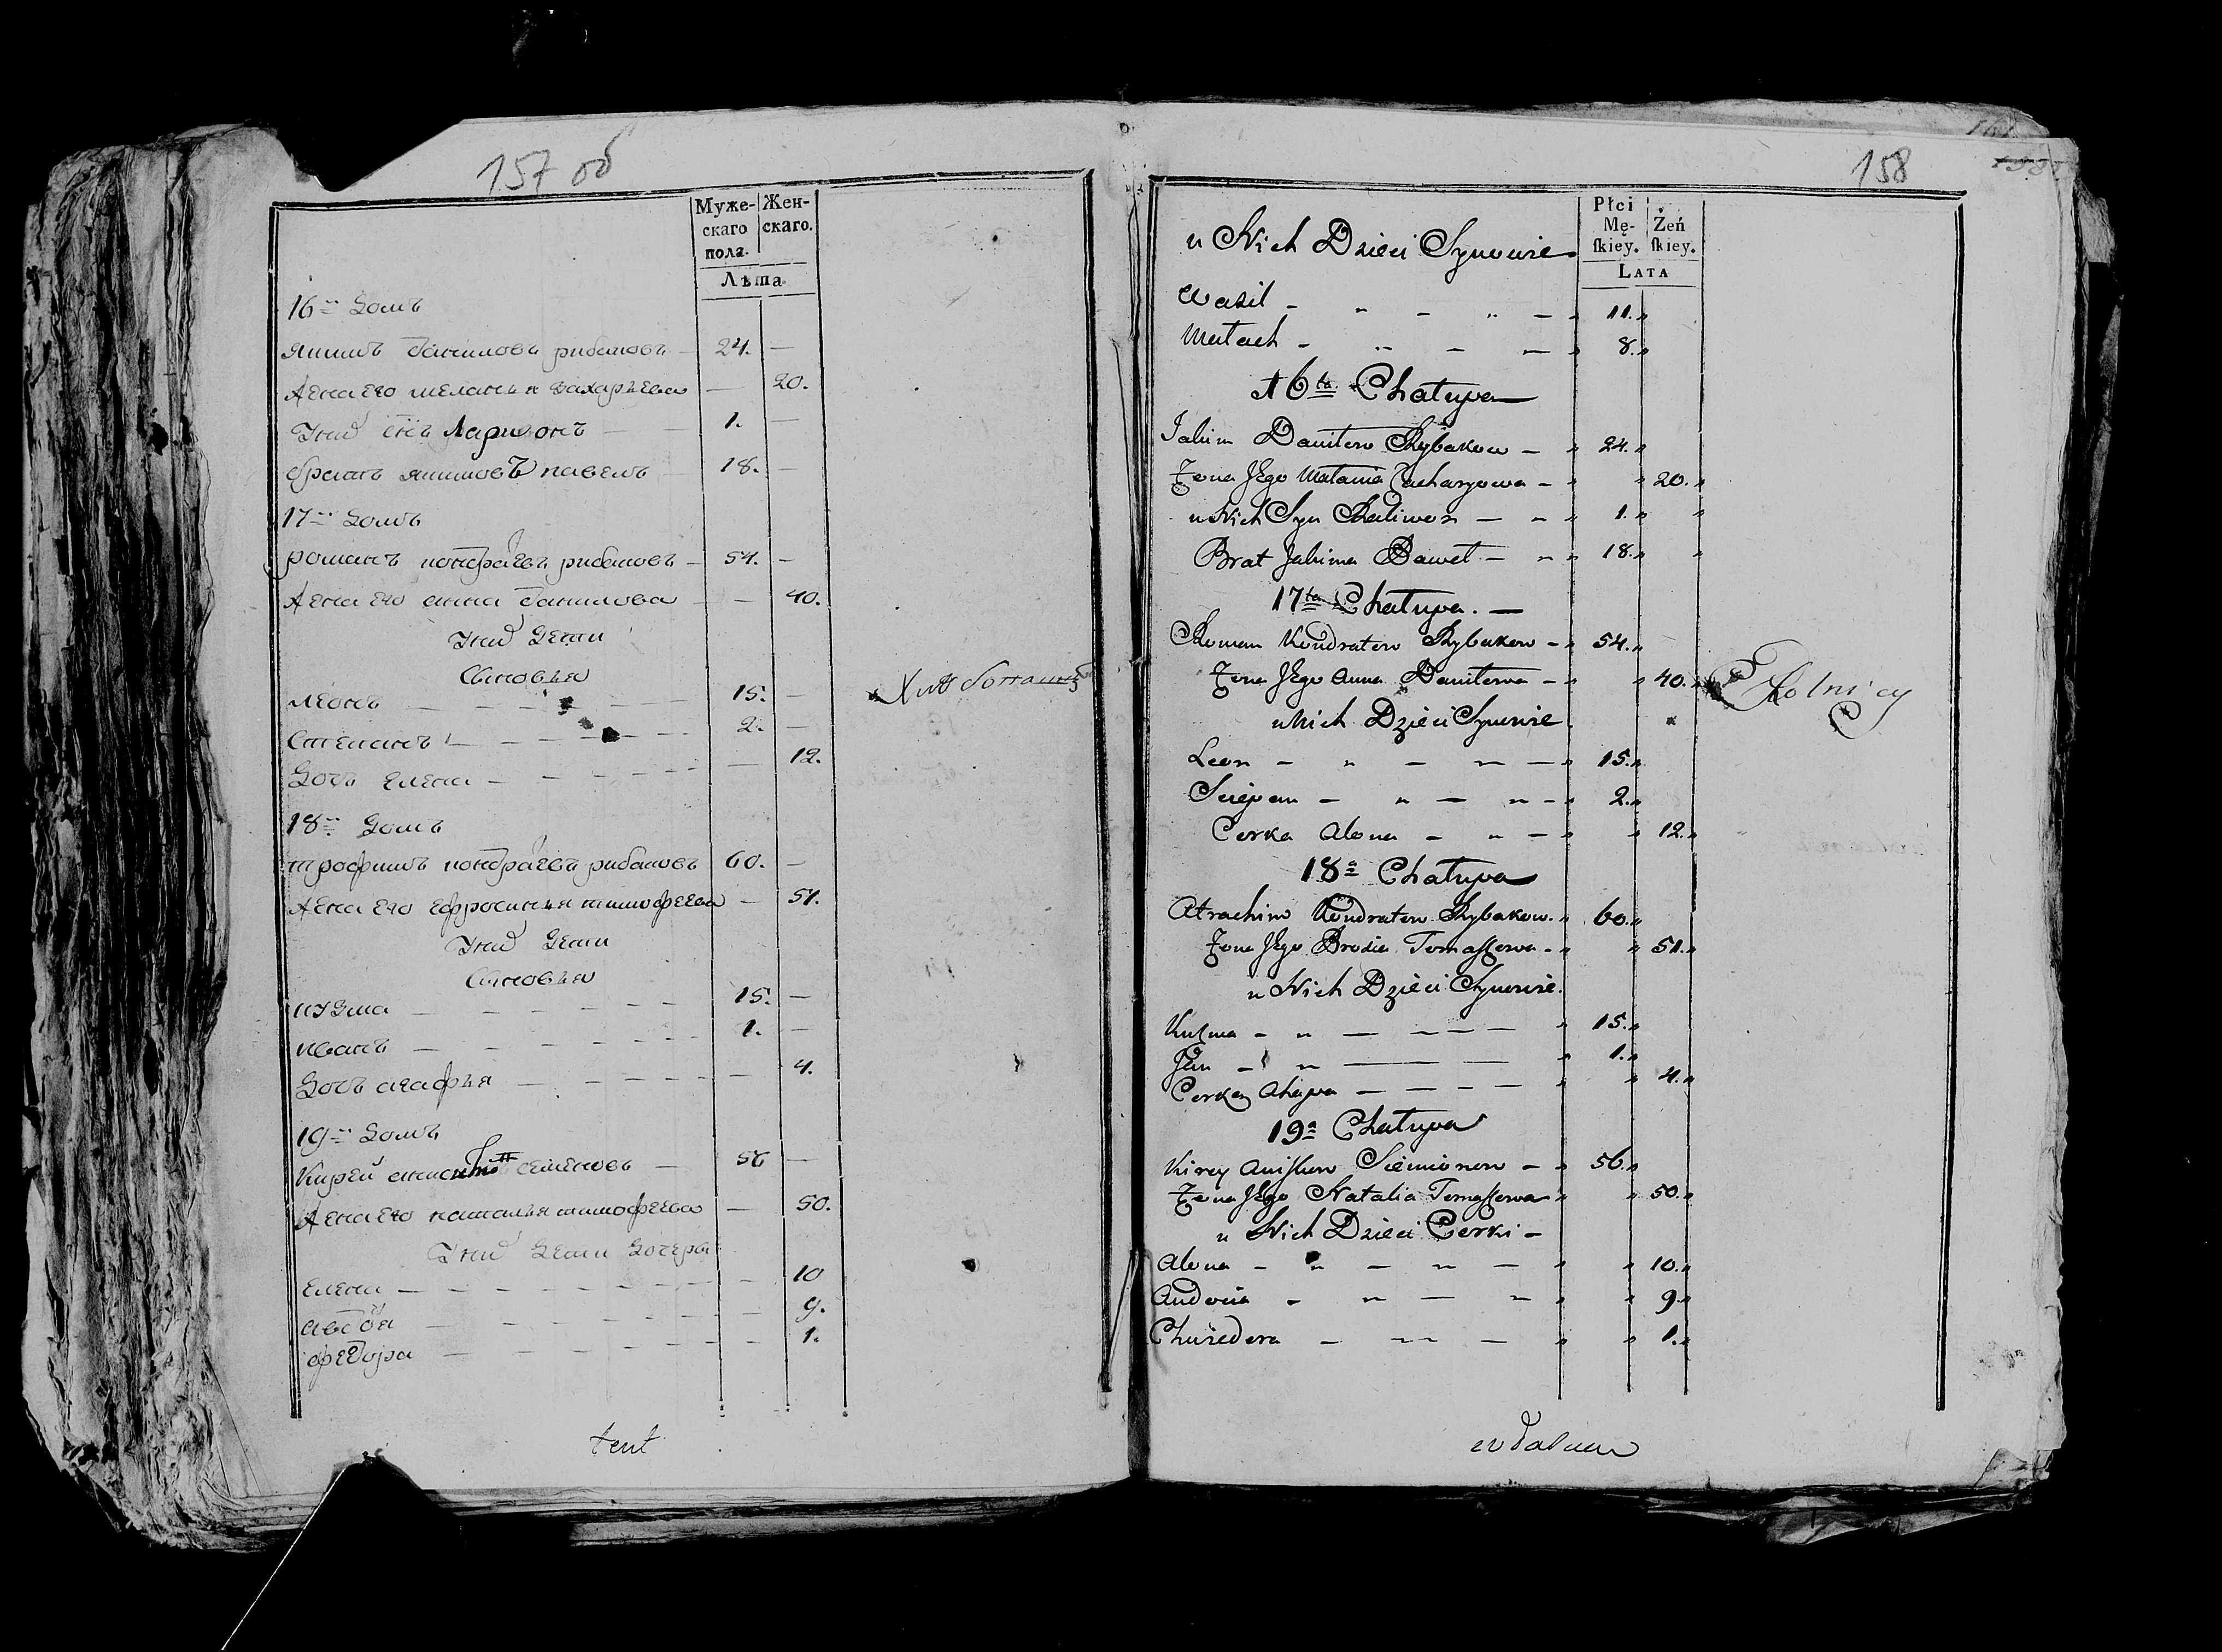 157 об
Муже-
скаго
пола.
Жен-
скаго.
Лѣта.
16й Домъ
Якимъ Даниловъ рибаковъ — 24. —
Жена его меланья захарьева — 20.
У нихъ снъ Ларионъ — 1. —
братъ якимовъ павелъ 18. —
17й Домъ
романъ кондрат́евъ рибаковъ — 54. —
Жена его анна данилова — 40.
У нихъ Дети
Сыновья
леонъ — 15. —
Степанъ — 2. —
Дочь елена — 12.
18й Домъ
трофимъ кондрат́евъ рибаковъ 60. —
Жена его ефросинья тимофеева — 51.
У нихъ Дети
Сыновья
кузма — 15. —
иванъ — 1. —
Дочь агафья — 4.
19й Домъ
Кирей семеновъ — 56 —
Жена его наталья тимофеева — 50.
У нихъ Дети Дочери
елена — 10
авдотя — 9.
федора — 1.
158
Płci
Mę-
ſkiey.
Żeń
ſkiey.
Lata
u Nich Dzieci Synowie
Wasil - " - " - " 11."
Małach - " - - " 8."
16ta Chałupa
Jakim Daniłow Rybakow - " 24."
Żona Jego Małania Zacharyowa - " " 20."
u Nich Syn — - " 1." "
Brat Jakima Paweł - - " 18." "
17ta Chałupa. —
Roman Kondratow Rybakow - " 54."
Żona Jego Anna Daniłowa - " " 40."
Rolnicy
u Nich Dzieci Synowie
Leon - " - - - " 15."
Sciepan - " - " - " 2."
Corka Alona - " - " " 12."
18a Chałupa
Atrachim Kondratow Rybakow. " 60."
Żona Jego Brosia Tomaſzowa - " " 51."
u Nich Dzieci Synowie.
Kuźma - " - - - - " 15."
Jan - " - - " 1."
Corka Ahapa - - - - " " 4."
19a Chałupa
Kirey Aniſkow Siemionow - " 56."
Żona Jego Natalia Tomaſzowa " " 50."
u Nich Dzieci Corki -
Alona - " - - - " " 10."
Audocia - - - - " " 9."
Chwiedora - - - - " " 1."